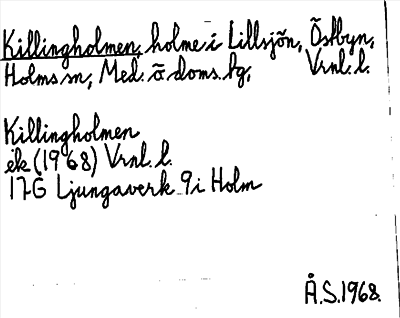 Killingholmen, holme i Lillsjön, Östbyn,
Holms sn, Med. ö doms. hg, Vrnl. l.
Killingholmen
ek (1968) Vrnl. l.
17G Ljungaverk 9i Holm
Å.S. 1968.